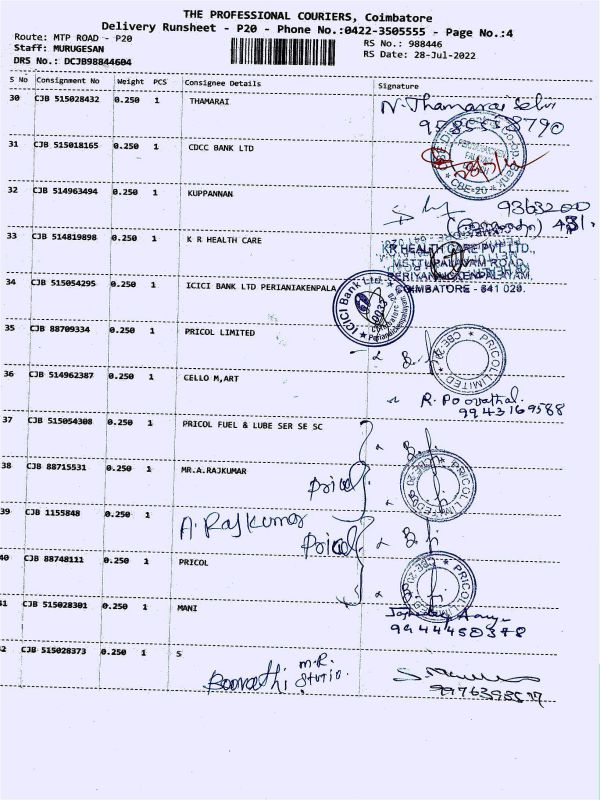 THE PROFESSIONAL COURIERS, Coimbatore
Delivery Runsheet - P20 - Phone No.:0422-3505555 - Page No.:4
Route: MTP ROAD - P20
Staff: MURUGESAN
DRS No.: DCJB98844604
RS No.: 988446
RS Date: 28-Jul-2022
S No Consignment No Weight PCS Consignee Details Signature
30 CJB 515028432 0.250 1 THAMARAI N. Thamarai Selvi
31 CJB 515018165 0.250 1 CDCC BANK LTD
CBE-20
32 CJB 514963494 0.250 1 KUPPANNAN
33 CJB 514819898 0.250 1 K R HEALTH CARE
KR HEALTH CARE PVT. LTD.,
METTUPALAYAM ROAD,
COIMBATORE - 641 020.
34 CJB 515054295 0.250 1 ICICI BANK LTD PERIANIAKENPALA
ICICI Bank Ltd.
35 CJB 88709334 0.250 1 PRICOL LIMITED
PRICOL LIMITED
36 CJB 514962387 0.250 1 CELLO M,ART
R. Poovathal
9943169588
37 CJB 515054308 0.250 1 PRICOL FUEL & LUBE SER SE SC
38 CJB 88715531 0.250 1 MR.A.RAJKUMAR
Pricol
PRICOL LIMITED
39 CJB 1155848 0.250 1 A. Rajkumar
Pricol
40 CJB 88748111 0.250 1 PRICOL
PRICOL LIMITED
41 CJB 515028301 0.250 1 MANI
42 CJB 515028373 0.250 1 S